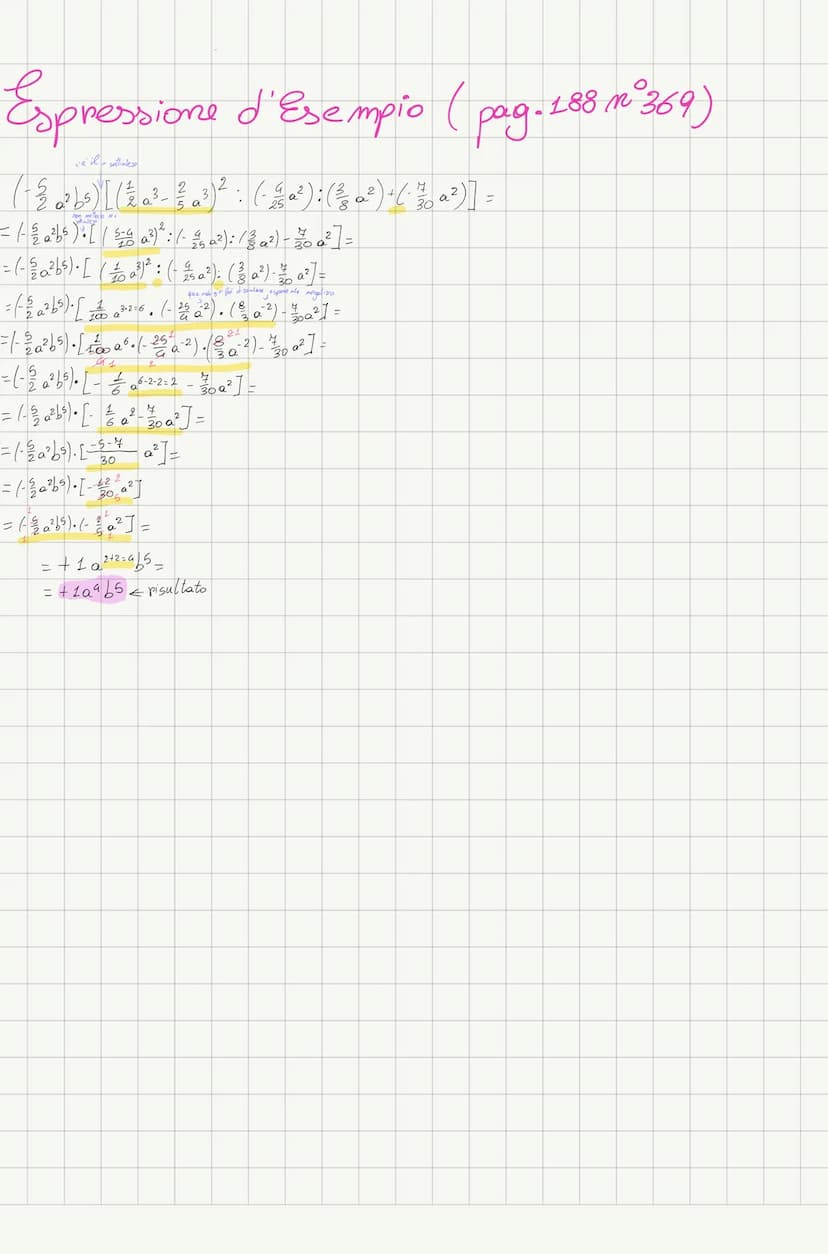 Espressione d'Esempio (pag.188 n°369)
(-5/2 a²b⁵)[(1/2 a³ - 2/5 a³)² : (-4/25 a²) : (3/8 a²) + (-7/30 a²)] =
= (-5/2 a²b⁵)·[(5-4/10 a³)² : (-4/25 a²) : (3/8 a²) - 7/30 a²] =
= (-5/2 a²b⁵)·[(1/10 a³)² : (-4/25 a²) : (3/8 a²) - 7/30 a²] =
= (-5/2 a²b⁵)·[1/100 a³·²⁼⁶ · (-25/4 a⁻²) · (8/3 a⁻²) - 7/30 a²] =
= (-5/2 a²b⁵)·[1/100 a⁶ · (-25/4 a⁻²) · (8/3 a⁻²) - 7/30 a²] =
= (-5/2 a²b⁵)·[-1/6 a⁶⁻²⁻²⁼² - 7/30 a²] =
= (-5/2 a²b⁵)·[-1/6 a² - 7/30 a²] =
= (-5/2 a²b⁵)·[-5-7/30 a²] =
= (-5/2 a²b⁵)·[-12/30 a²]
= (-5/2 a²b⁵)·(-2/5 a²] =
= +1a²⁺²⁼⁴b⁵ =
= +1a⁴b⁵ ← risultato